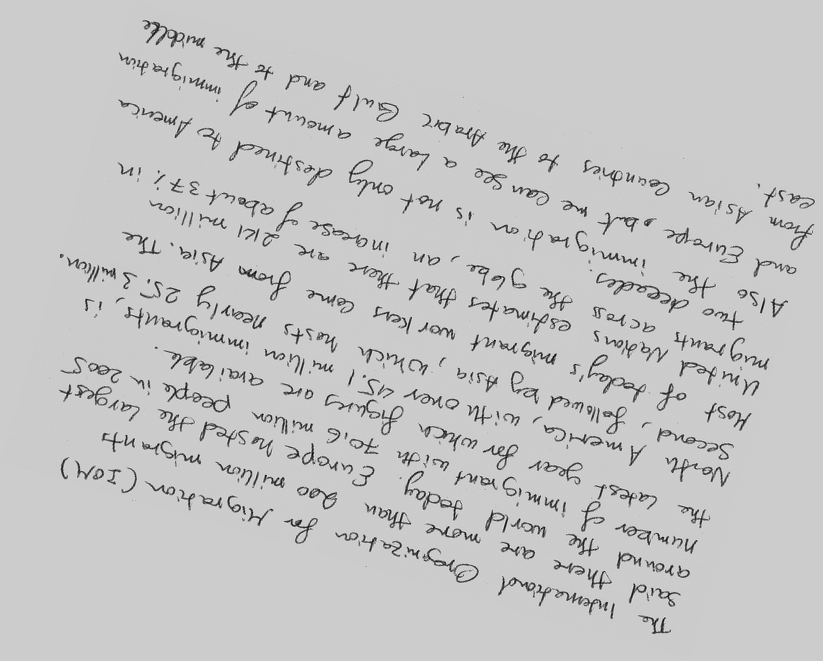 The International Organization for Migration (IOM)
said there are more than 200 million migrants
around the world today. Europe hosted the largest
number of immigrant with 70,6 million people in 2005
the latest year for which figures are available.
North America, with over 45.1 million immigrants, is
Second, followed by Asia, which hosts nearly 25.3 million.
Host of today's migrant workers come from Asia. The
United Nations estimates that there are 214 million
migrants across the globe, an increase of about 37% in
two decades.
Also the immigration is not only destined to America
and Europe, but we can see a large amount of immigration
from Asian Countries to the Arabic Gulf and to the middle
east.